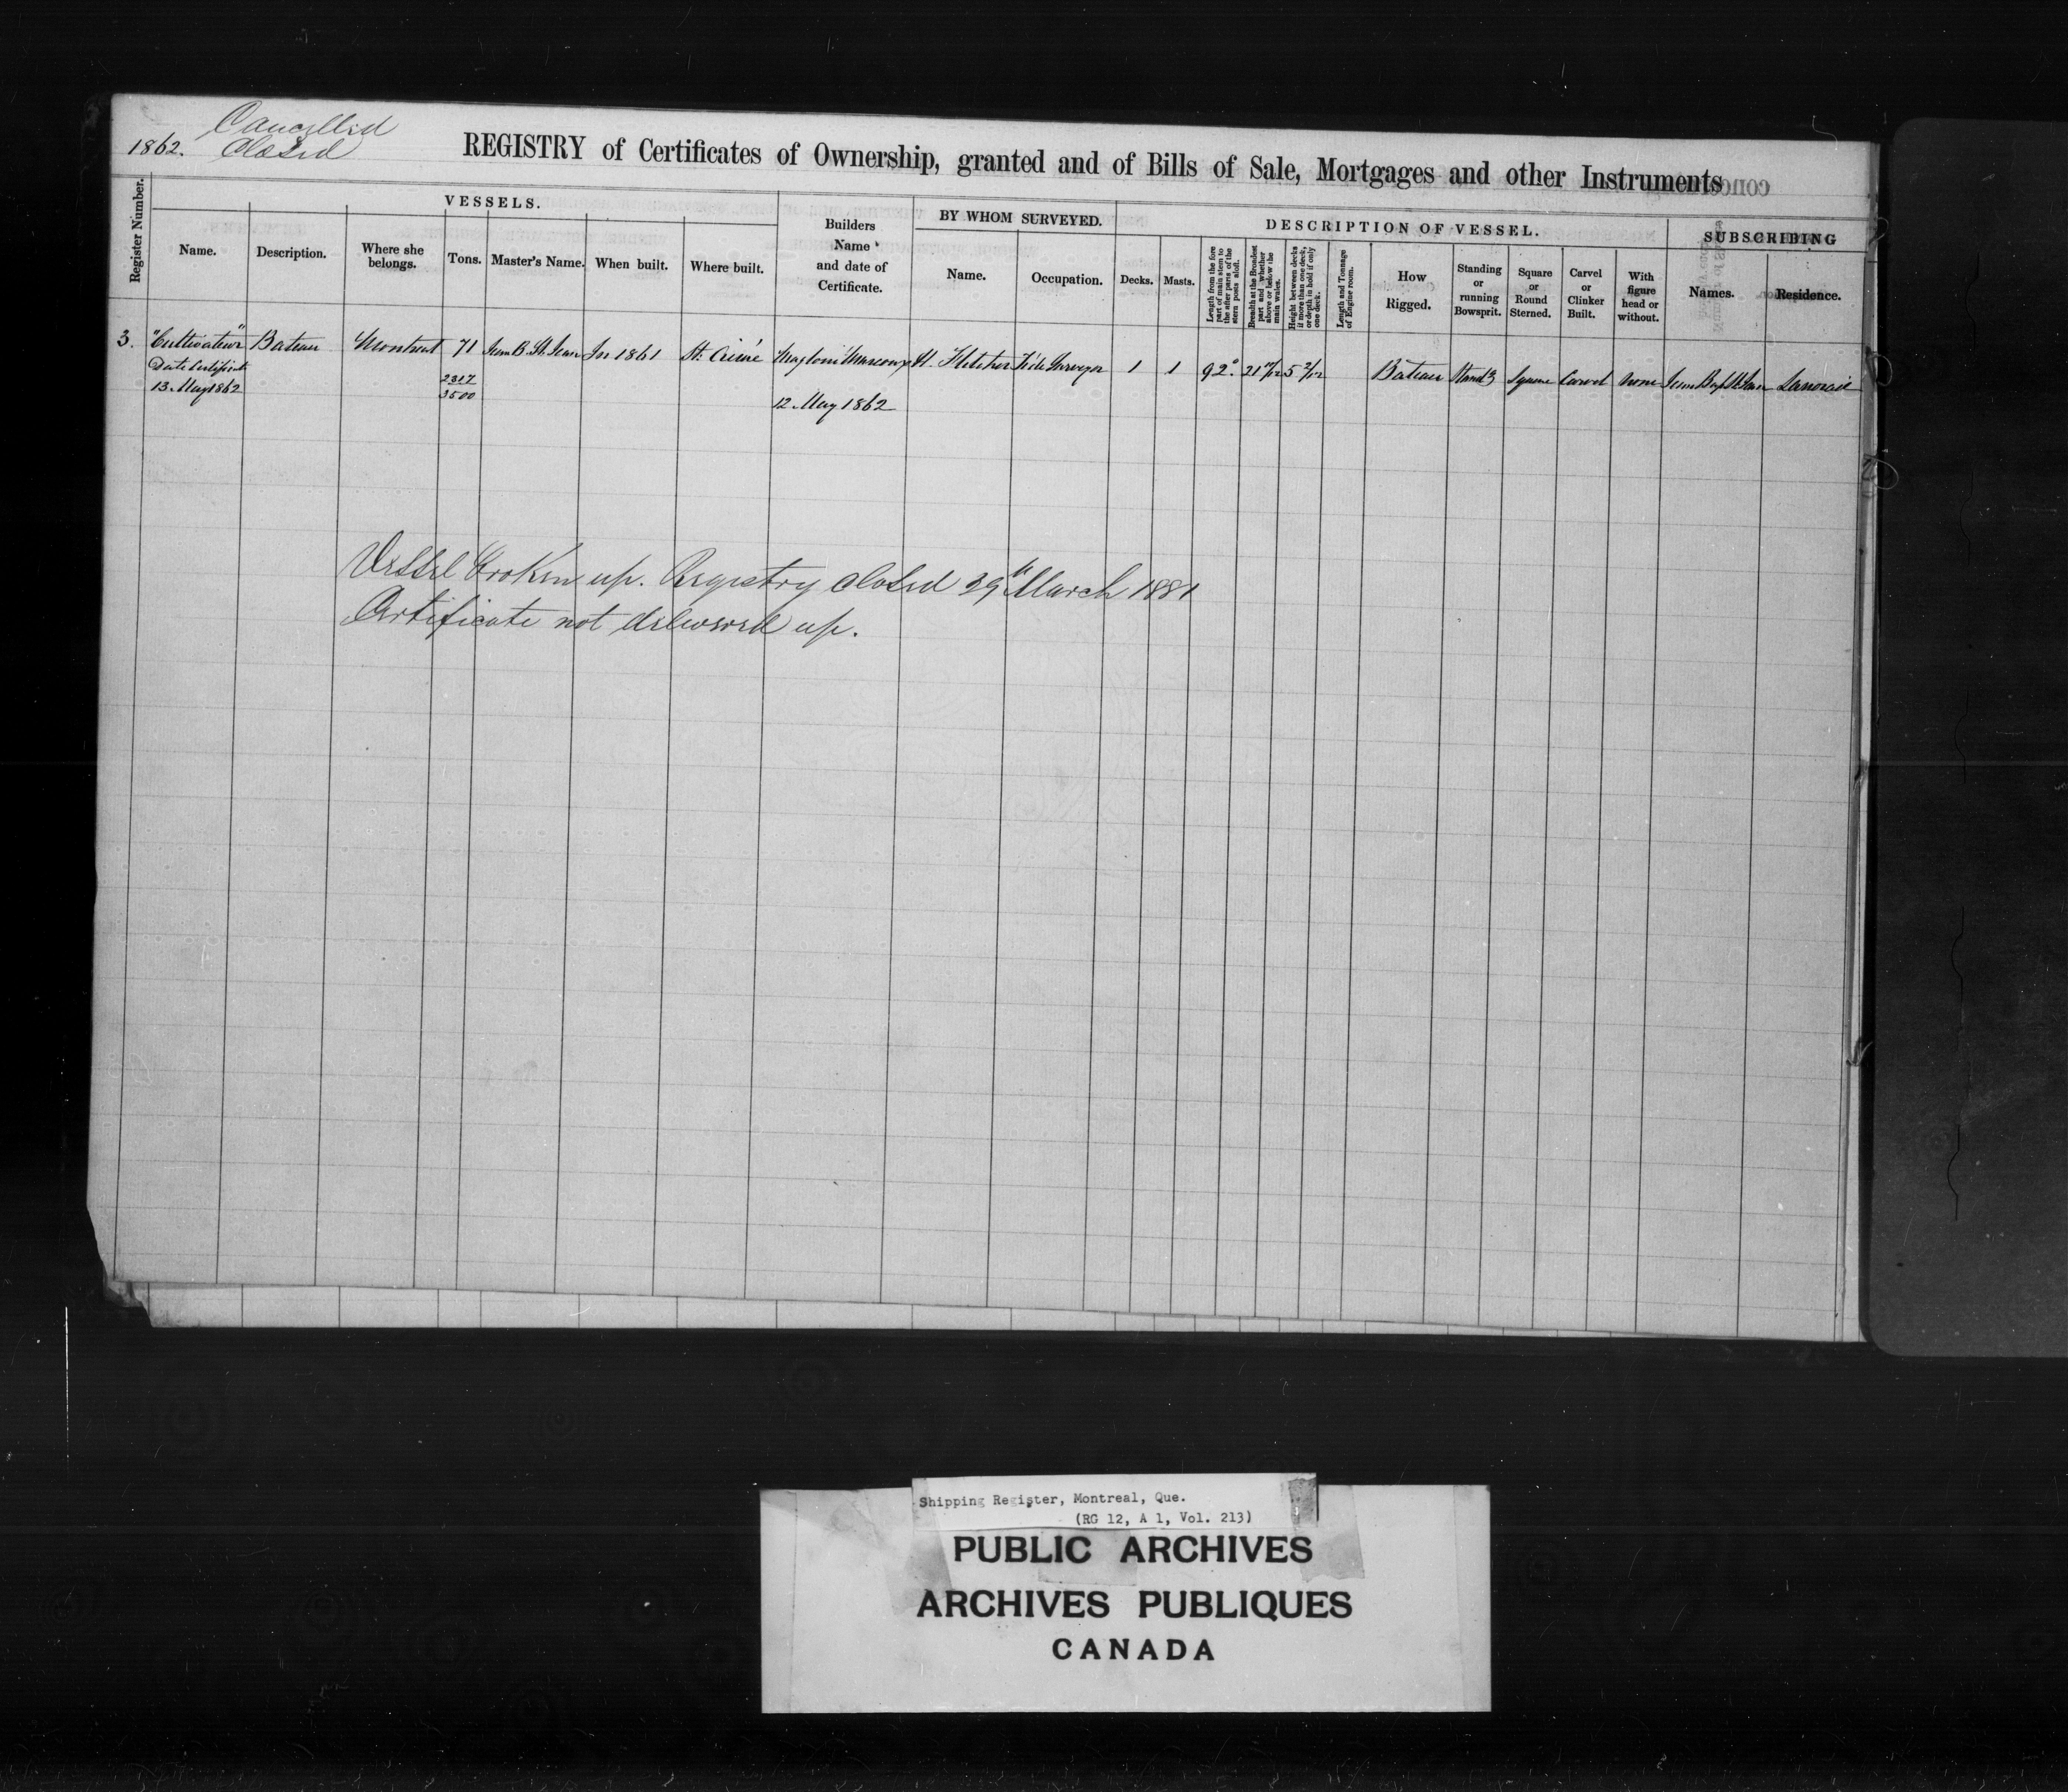 Cancelled
1862. Closed
REGISTRY of Certificates of Ownership, granted and of Bills of Sale, Mortgages and other Instruments
Register Number.
VESSELS.
Name.
Description.
Where she belongs.
Tons.
Master's Name.
When built.
Where built.
Builders Name and date of Certificate.
BY WHOM SURVEYED.
Name.
Occupation.
DESCRIPTION OF VESSEL.
Decks.
Masts.
Length from the fore part of main stem to the after parts of the stern posts aloft.
Breadth at the Broadest part and whether above or below the main wales.
Height between decks if more than one deck, or depth in hold if only one deck.
Length and Tonnage of Engine room.
How Rigged.
Standing or running Bowsprit.
Square or Round Sterned.
Carvel or Clinker Built.
With figure head or without.
SUBSCRIBING
Names.
Residence.
3. "Cultivateur" Bateau Montreal 71 Jean B. St. Jean In 1861 St. Aimé H. Fletcher Tide Surveyor 1 1 92 Bateau Stand'g Square Carvel None Jean Bapt St. Jean Lanoraie
Date Certificate 2317
13 May 1862 3500
12 May 1862
Vessel broken up. Registry closed 29th March 1881
Certificate not delivered up.
Shipping Register, Montreal, Que.
(RG 12, A 1, Vol. 213)
PUBLIC ARCHIVES
ARCHIVES PUBLIQUES
CANADA